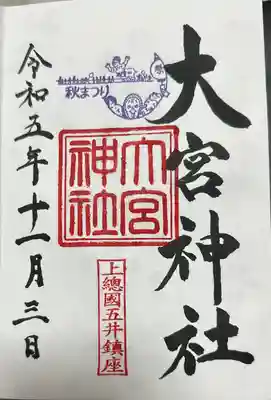 大宮神社
秋まつり
大宮
神社
上總國五井鎮座
令和五年十一月三日